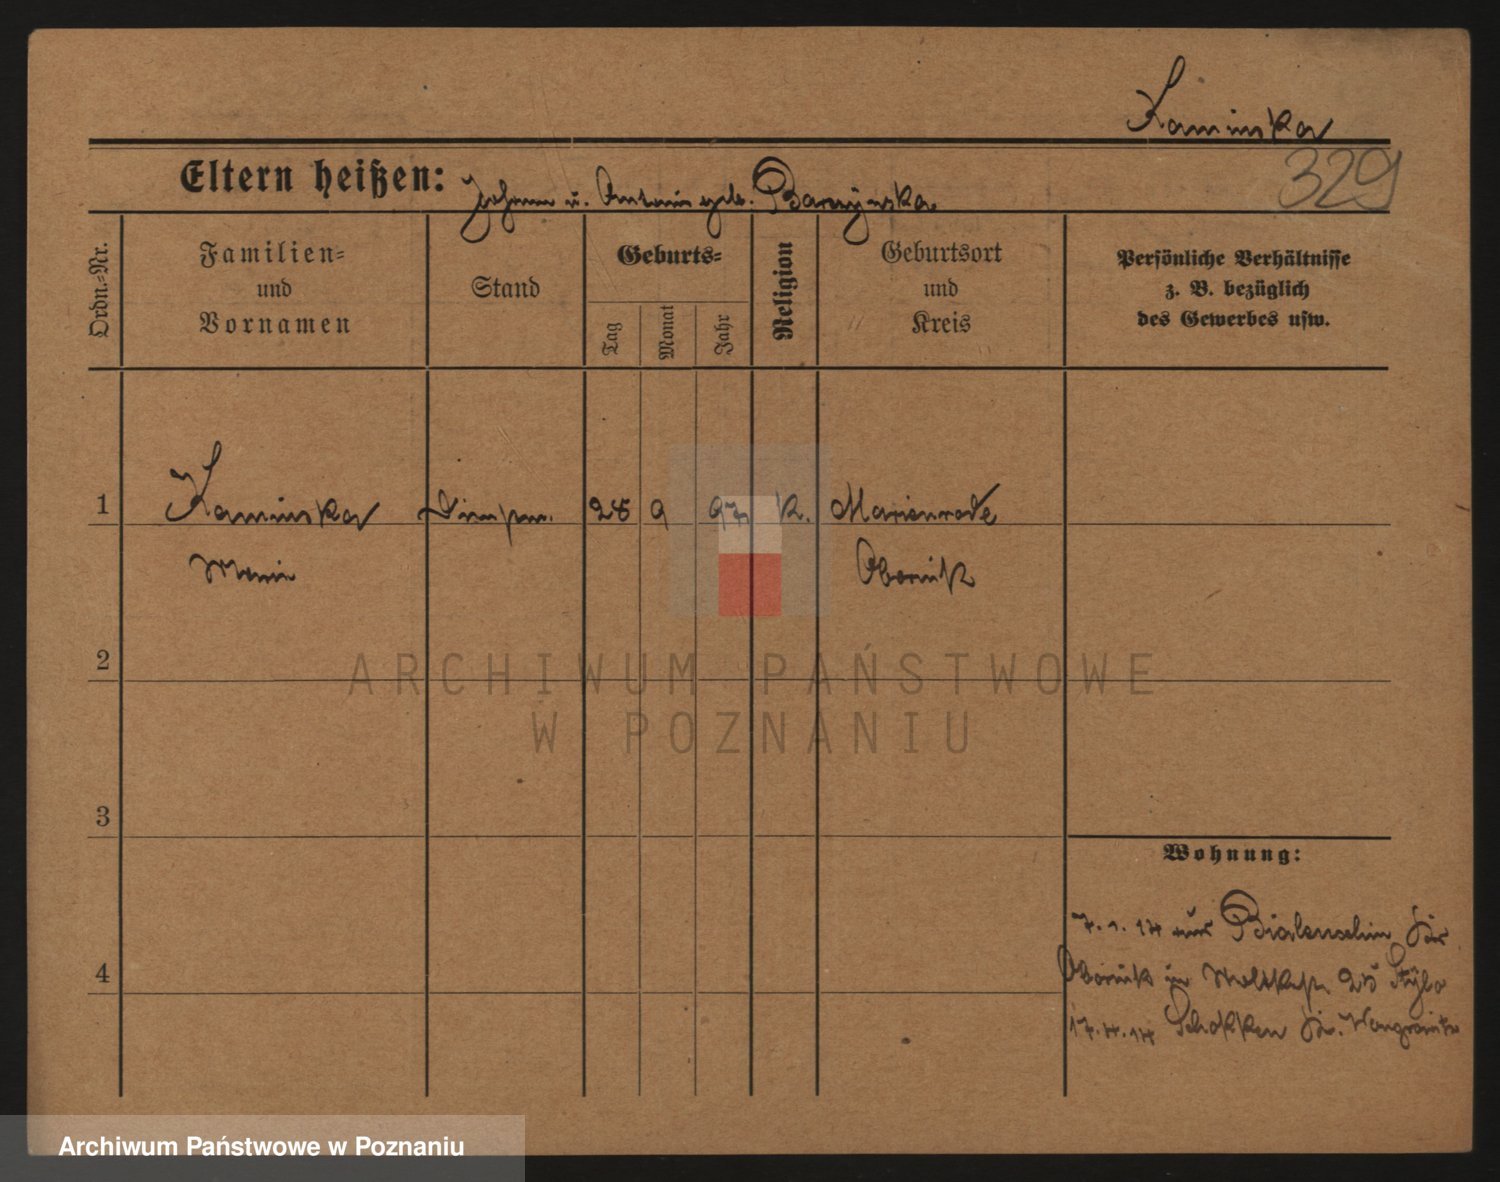 Kaminska
329
Eltern heißen: Johann u. Antonie geb. Barczynska
Ordn.-Nr.
Familien-
und
Vornamen
Stand
Geburts-
Tag
Monat
Jahr
Religion
Geburtsort
und
Kreis
Persönliche Verhältnisse
z. B. bezüglich
des Gewerbes usw.
1 Kaminska 28 9 97 k. Marienrode
Marie Obornik
2
ARCHIWUM PAŃSTWOWE
W POZNANIU
3
Wohnung:
7.1.14 aus Bialenschin Kr
4
Obornik in 25
17.4.14 Schokken Kr. Wongrowitz
Archiwum Państwowe w Poznaniu